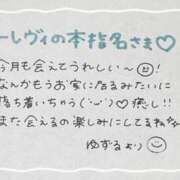 ーレヴィの本指名さま♡
今月も会えてうれしい〜
なんかもうお家に居るみたいに
落ち着いちゃう(´ω`)♡癒し!!
また会えるの楽しみにしてるね
ゆずるより